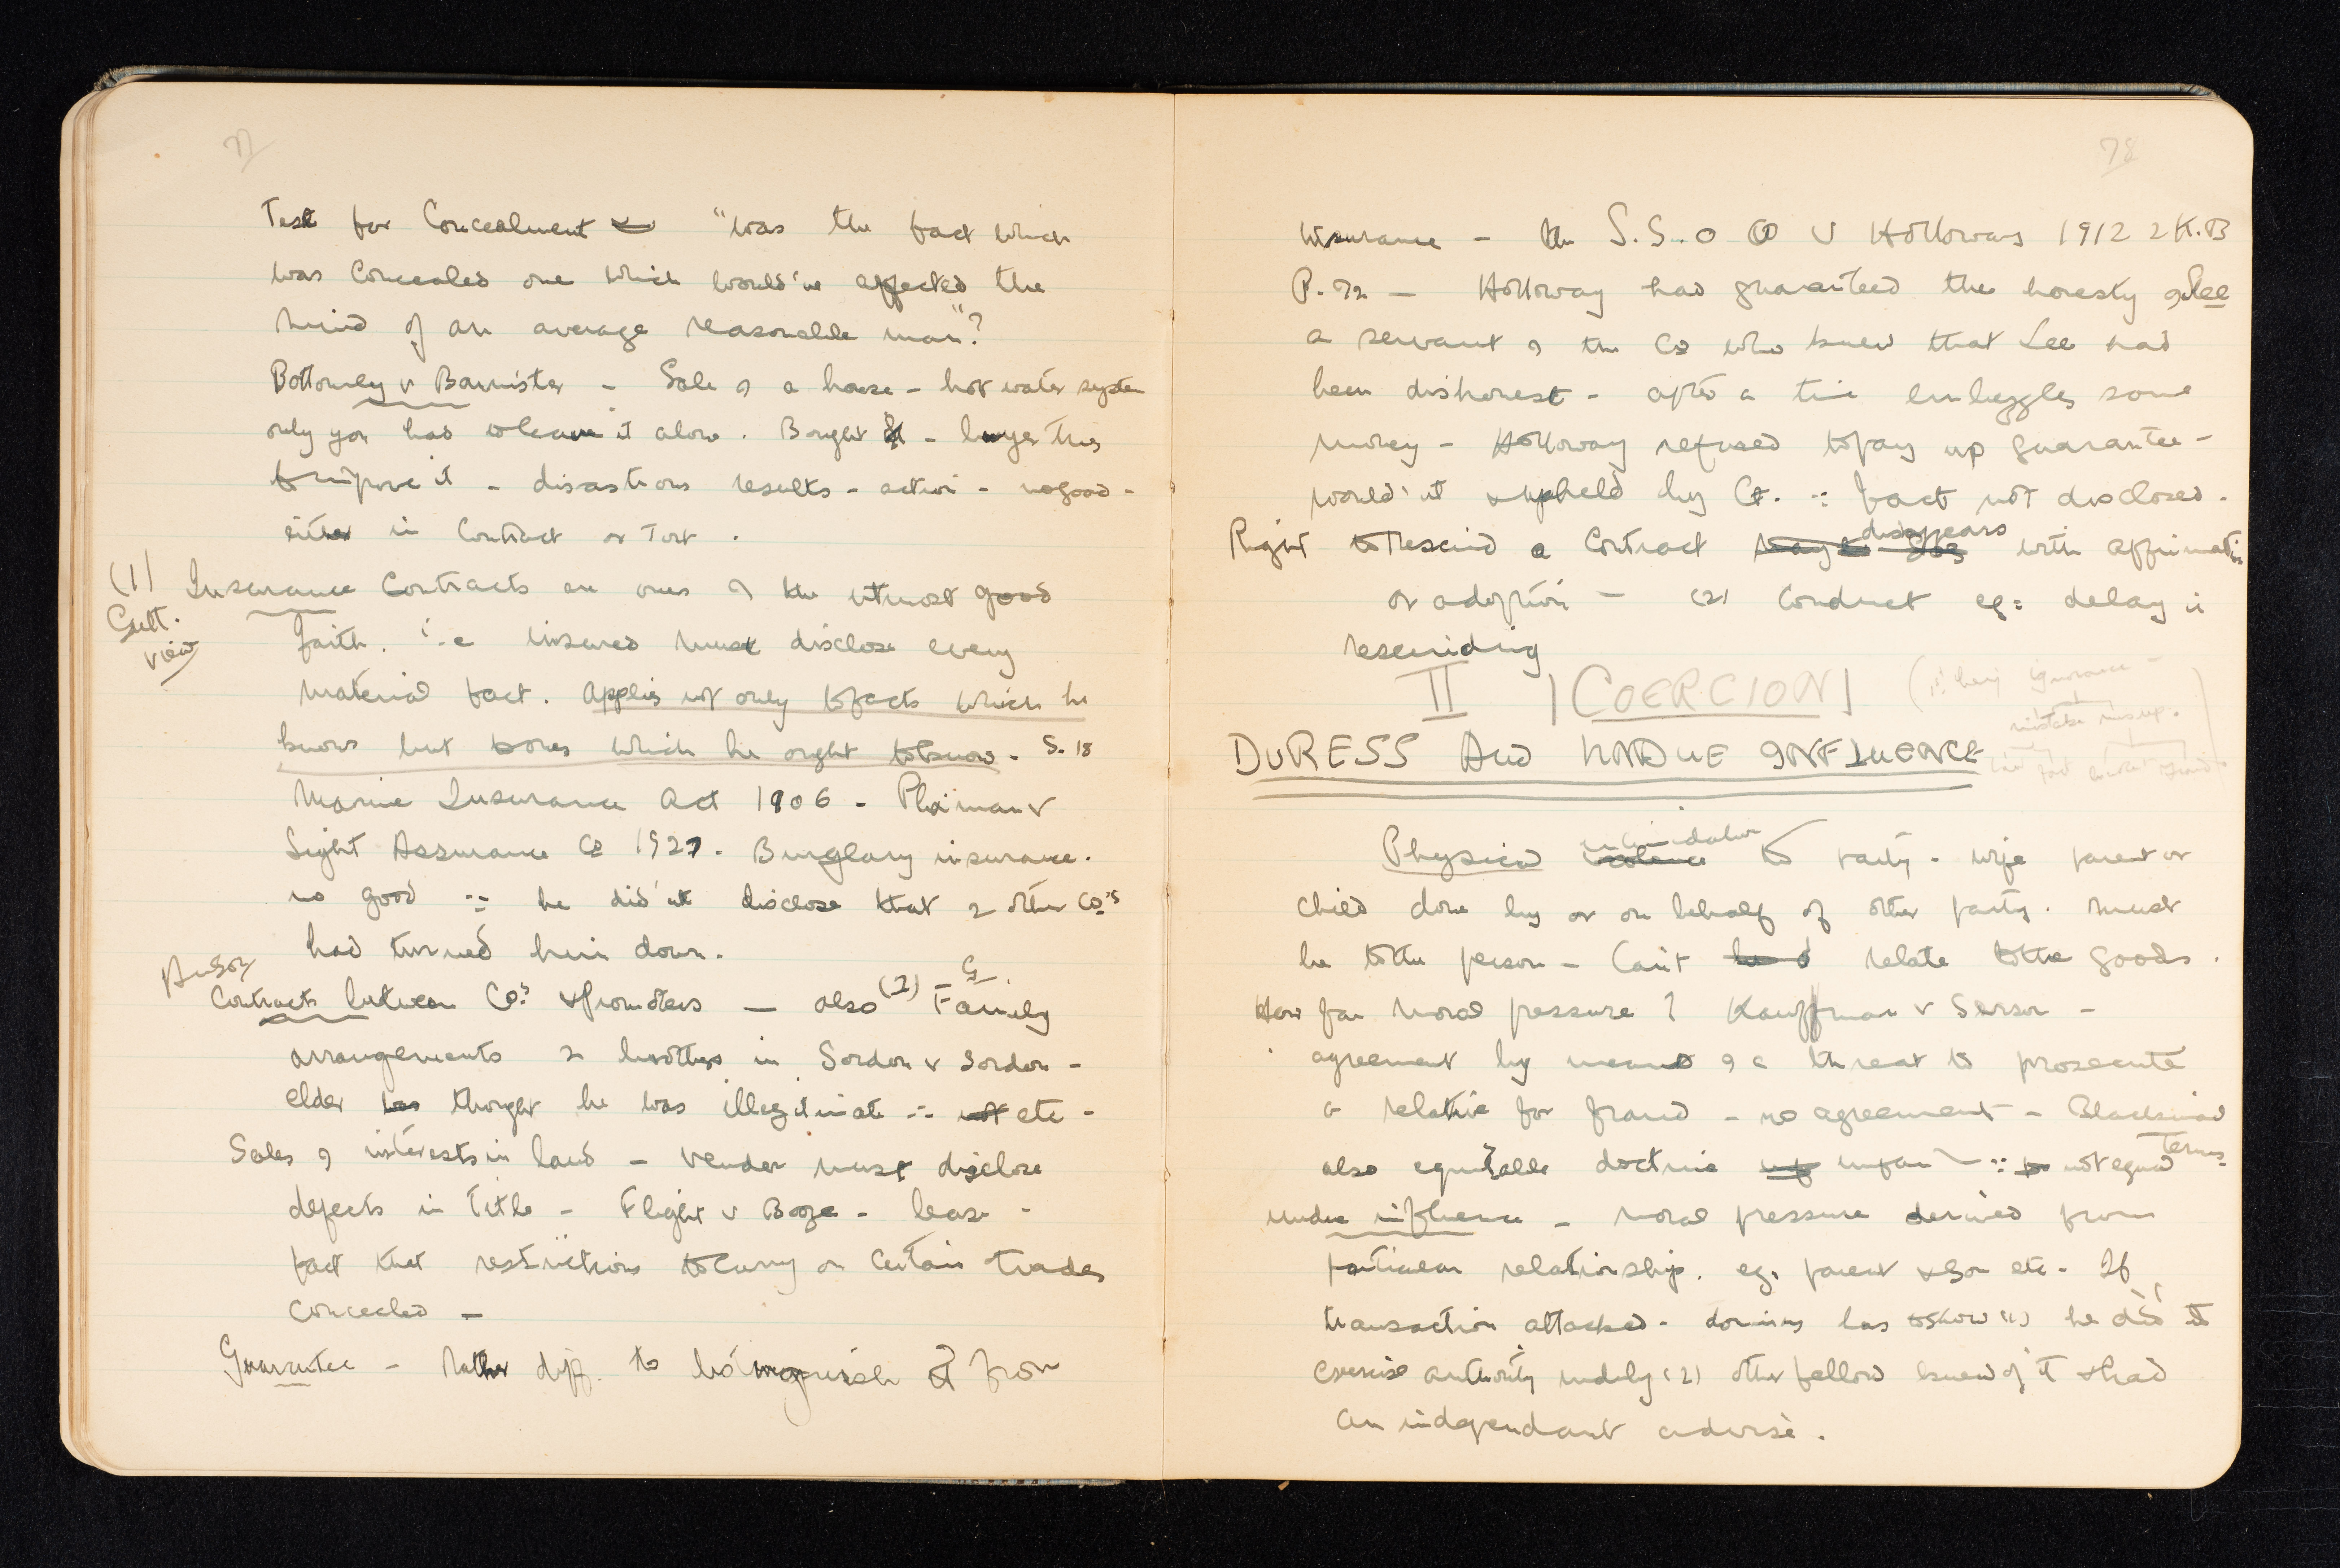 77
Test for Concealment "was the fact which
was concealed one which would've affected the
mind of an average reasonable man"?
Bottomley v Bannister - Sale of a house - hot water system
only you had to leave it alone. Bought it - buyer tries
to improve it - disastrous results - action - no good -
either in Contract or Tort.
(1) Insurance Contracts are ones of the utmost good
Gutt.
view
faith. i.e insured must disclose every
material fact. Applies not only to facts which he
knows but to ones which he ought to know. S. 18
Marine Insurance Act 1906 - v
Light Assurance Co 1927. Burglary insurance.
no good ∵ he did'nt disclose that 2 other Co's
had turned him down.
Anson
Contracts between Co's & promoters - also (2) Family
arrangements 2 brothers in Gordon v Gordon -
elder was thought he was illegitimate ∴ not etc -
Sales of interests in land - vendor must disclose
defects in Title - Flight v Booze - lease -
fact that restrictions to carry on certain trades
concealed -
Guarantee - Rather diff. to distinguish it from
78
insurance - the S.S. O v Holloway 1912 2 K.B
P. 72 - Holloway had guaranteed the honesty of Lee
a servant of the Co who knew that Lee had
been dishonest - after a time embezzles some
money - Holloway refused to pay up guarantee -
would'nt & upheld by Ct. ∵ fact not disclosed.
Right to Rescind a Contract disappears with affirmation
or adoption - (2) Conduct eg: delay in
rescinding
II |COERCION|
(∵ being ignorance -
mistake misrep.
DURESS AND UNDUE INFLUENCE
Physical violence intimidation to party - wife parent or
child done by or on behalf of other party. Must
be to the person - Can't relate to the goods.
How far moral pressure? Kauffman v Gerson -
agreement by means of a threat to prosecute
a relative for fraud - no agreement - Blackmail
also equitable doctrine unfair ∵ not equal terms.
undue influence - moral pressure derived from
particular relationship. eg. parent & son etc. If
transaction attacked - dominus has to show (1) he did'nt
exercise authority unduly (2) other fellow knew of it & had
an independant advise.